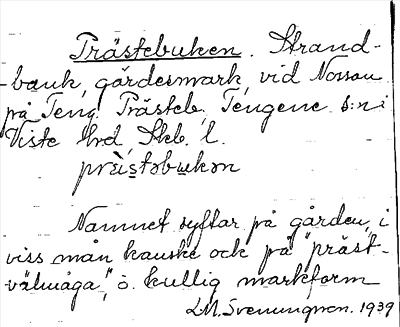 Prästebuken. Strand-
bank, gärdesmark, vid Nossan
på Teng. Prästeb., Tengene s:n i
Viste hrd, Skb. l.
prɛ̀istəbukən
Namnet syftar på gården, i
viss mån kanske ock på "präst-
välmåga", o. kullig markform
L.M. Svennungsson. 1939